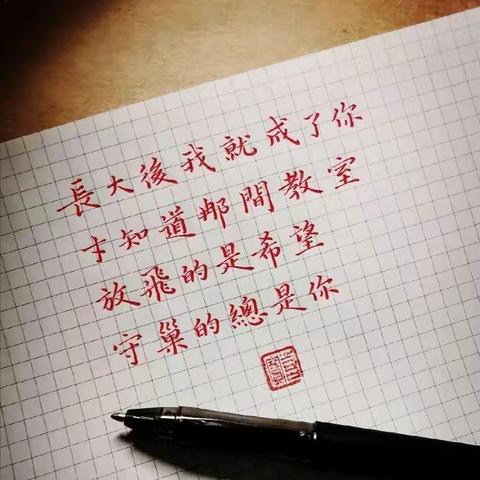 長大後我就成了你
才知道那間教室
放飛的是希望
守巢的總是你